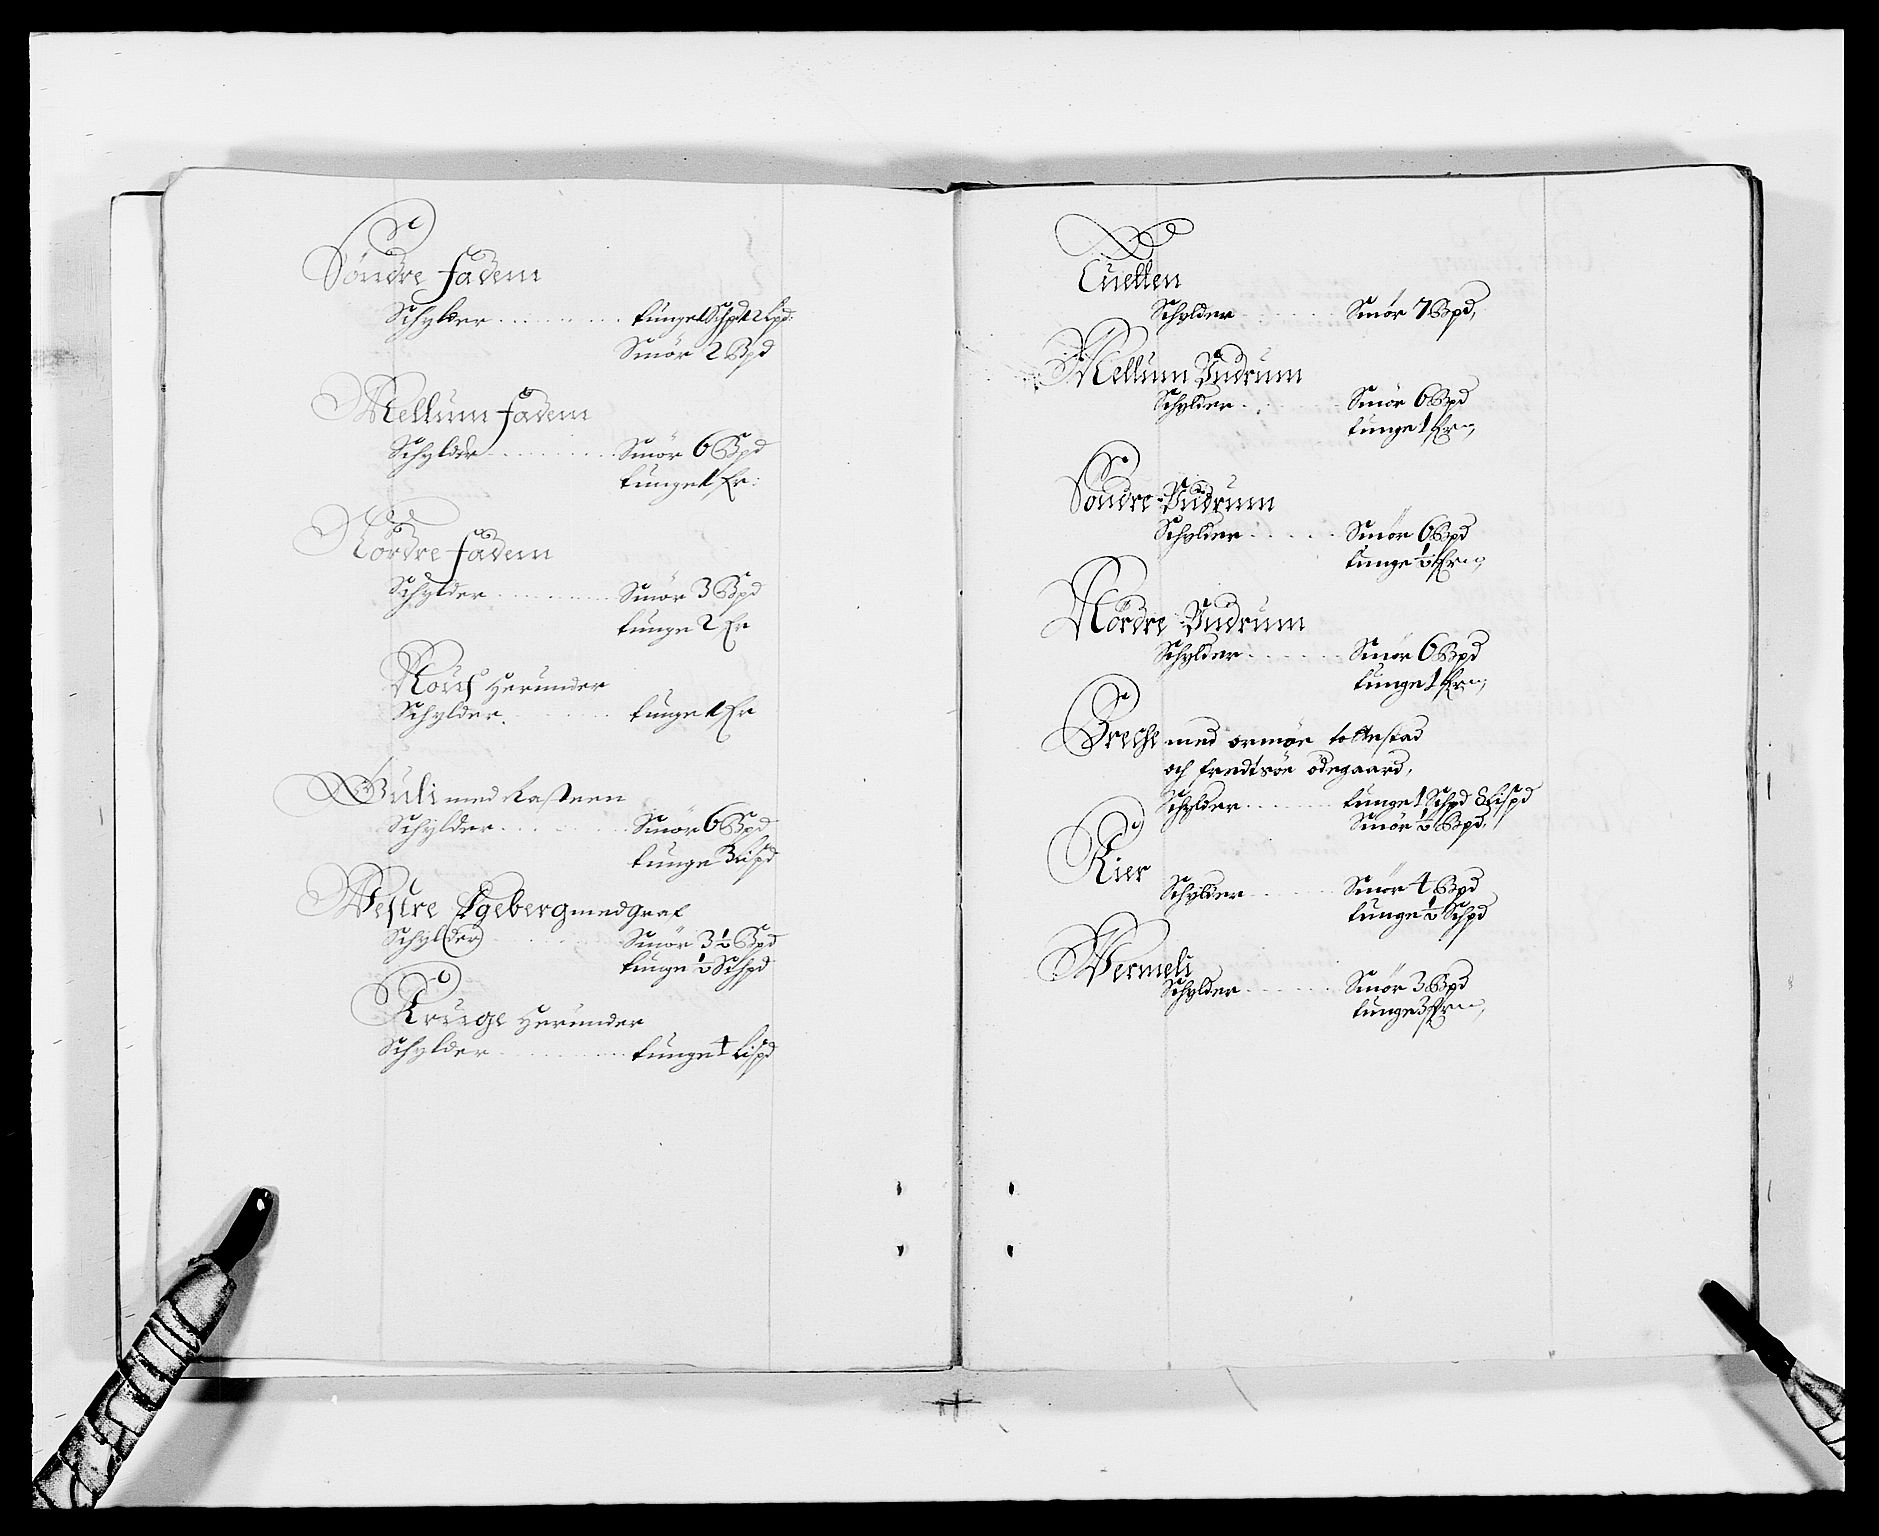 Söndre fadem
Schylder ........ tunge 1 Schpd 2 Lpd:
Smör 2 Bpd
Mellum fadem
Schylder ........ Smör 6 Bpd
tunge 1 Fr:
Nordre fadem
Schylder ........ Smör 3 Bpd
tunge 2 Fr
Herunder
Schylder ........ tunge 1 Fr
Huli med Kasteen
Schylder ........ Smör 6 Bpd
tunge 3 Lispd
Westre Egeberg med Graf
Schylder ........ Smör 3 ½ Bpd
tunge ½ Schpd
Kruige Herunder
Schylder ........ tunge 4 Lispd
Tuetten
Schylder ........ Smör 7 Bpd,
Mellum Pudrum
Schylder ........ Smör 6 Bpd
tunge 1 Fr:,
Söndre Pudrum
Schylder ........ Smör 6 Bpd
tunge ½ Fr:,
Nordre Pudrum
Schylder ........ Smör 6 Bpd
tunge 1 Fr:,
Breche med ormöe tottestad
och fredtsöe ödegaard,
Schylder ........ tunge 1 Schpd 8 Lispd
Smör ½ Bpd,
Kier
Schylder ........ Smör 4 Bpd
tunge ½ Schpd
Wermeli
Schylder ........ Smör 3 Bpd
tunge 3 Fr:,